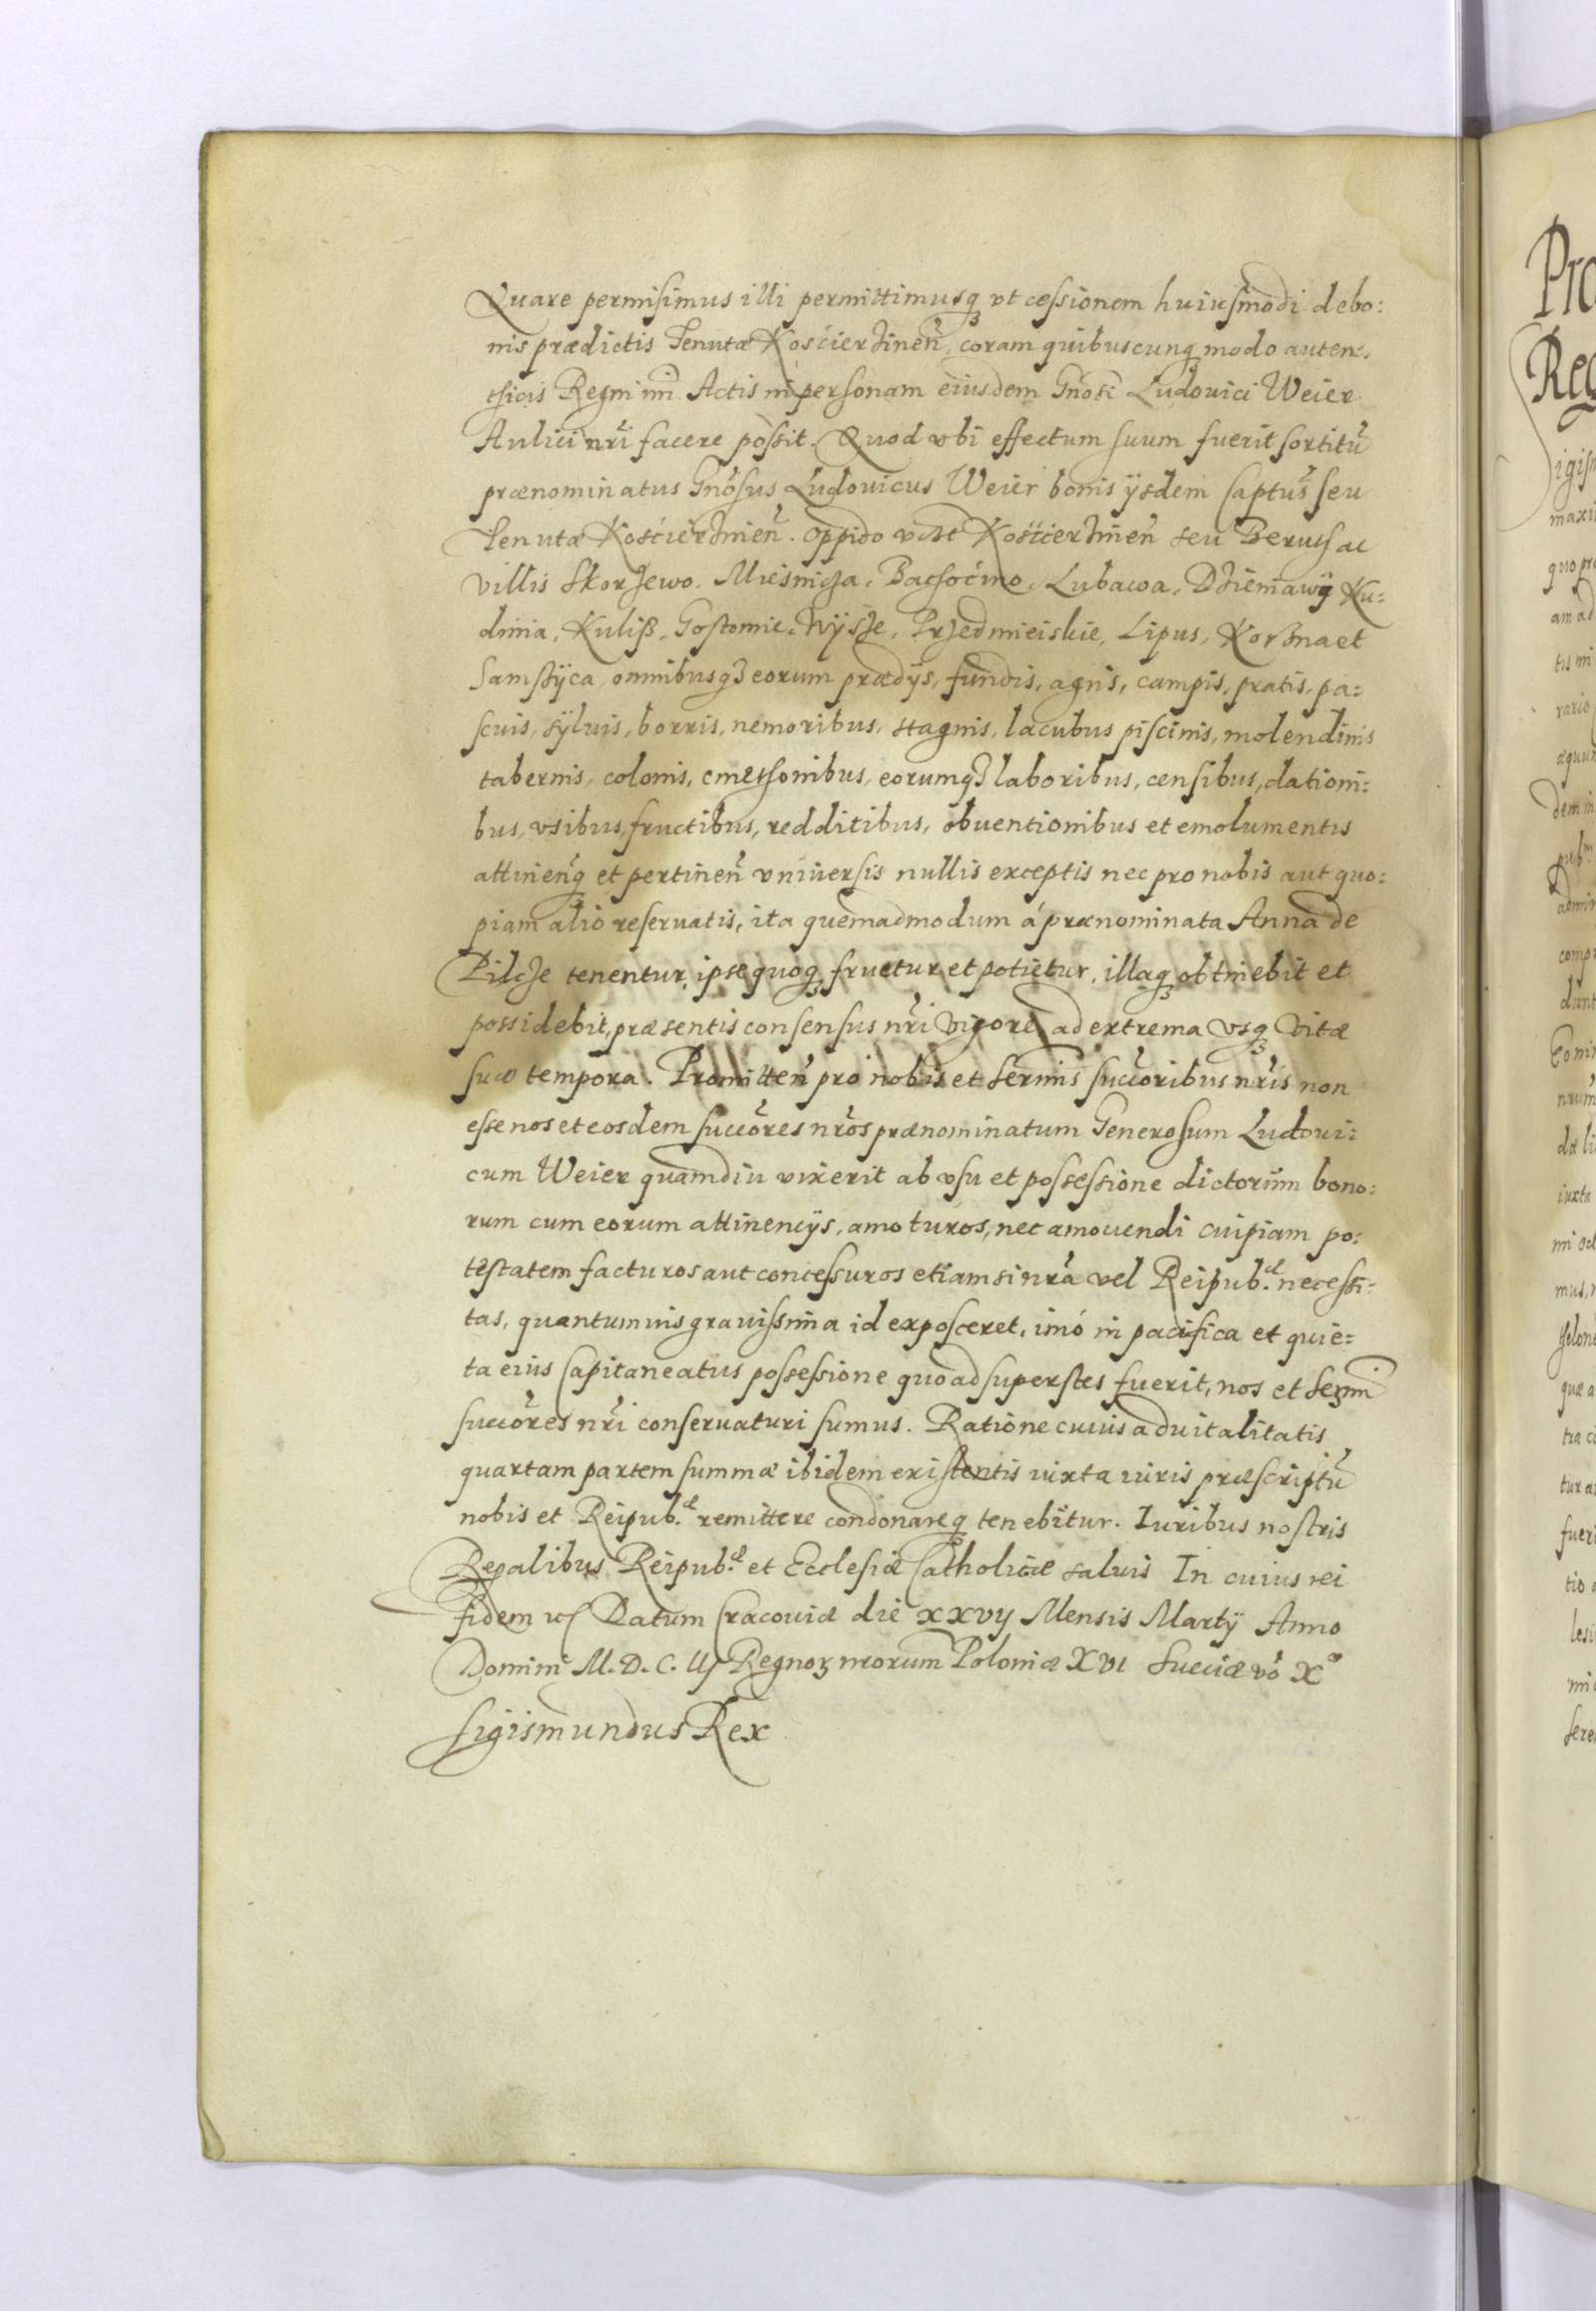 Quare permisimus illi permittimusq; vt cessionem huiusmodi de bo:
nis prædictis Tenutæ Kościerzineñ, coram quibuscunq; modo auten:
thicis Regni nri Actis in personam eiusdem Gnosi Ludouici Weier
Aulici nri facere possit. Quod vbi effectum suum fuerit sortitũ
prænominatus Gnosus Ludouicus Weier bonis ijsdem Captus seu
Tenutæ Kościerzineñ. oppido vidt Kościerzineñ seu Bern ac
villis Skorzewo. Mieśnicza, Bachoćino, Lubawa, Dziemiawy Ku:
dinia, Kuliß, Gostomie, Wysze, Przedmieiskie, Lipus, Korzna et
Samszyca, omnibusq; eorum prædijs, fundis, agris, campis, pratis, pa:
scuis, syluis, borris, nemoribus, stagnis, lacubus piscinis, molendinis
tabernis, colonis, cmethonibus, eorumq; laboribus, censibus, dationi:
bus, vsibus, fructibus, redditibus, obuentionibus et emolumentis
attineñq; et pertineñ vniuersis nullis exceptis nec pro nobis aut quo:
piam alio reseruatis, ita quemadmodum á prænominata Anna de
Pilcze tenentur, ipse quoq; fruetur et potietur, illaq; obtinebit et
possidebit, præsentis consensus nri vigore, ad extrema vsq; vitæ
suæ tempora. Promitteñ pro nobis et Sermis succoribus nris non
esse nos et eosdem succores nros prænominatum Generosum Ludoui:
cum Weier quamdiu vixerit ab vsu et possessione dictorum bono:
rum cum eorum attinencijs, amoturos, nec amouendi cuipiam po:
testatem facturos aut concessuros etiamsi nra vel Reipub.æ necessi:
tas, quantumuis grauissima id exposceret, imó in pacifica et quie:
ta eius Capitaneatus possessione quoad superstes fuerit, nos et Sermi
succores nri conseruaturi sumus. Ratione cuius aduitalitatis
quartam partem summæ ibidem existentis iuxta iuris præscriptũ
nobis et Reipub.æ remittere condonareq; tenebitur. Iuribus nostris
Regalibus Reipub.æ et Ecclesiæ Catholicæ saluis In cuius rei
fidem etc Datum Cracouiæ die xxvij Mensis Martij Anno
Domini M. D. C. iij Regnor; nrorum Poloniæ XVI Sueciæ vo Xo
Sigismundus Rex